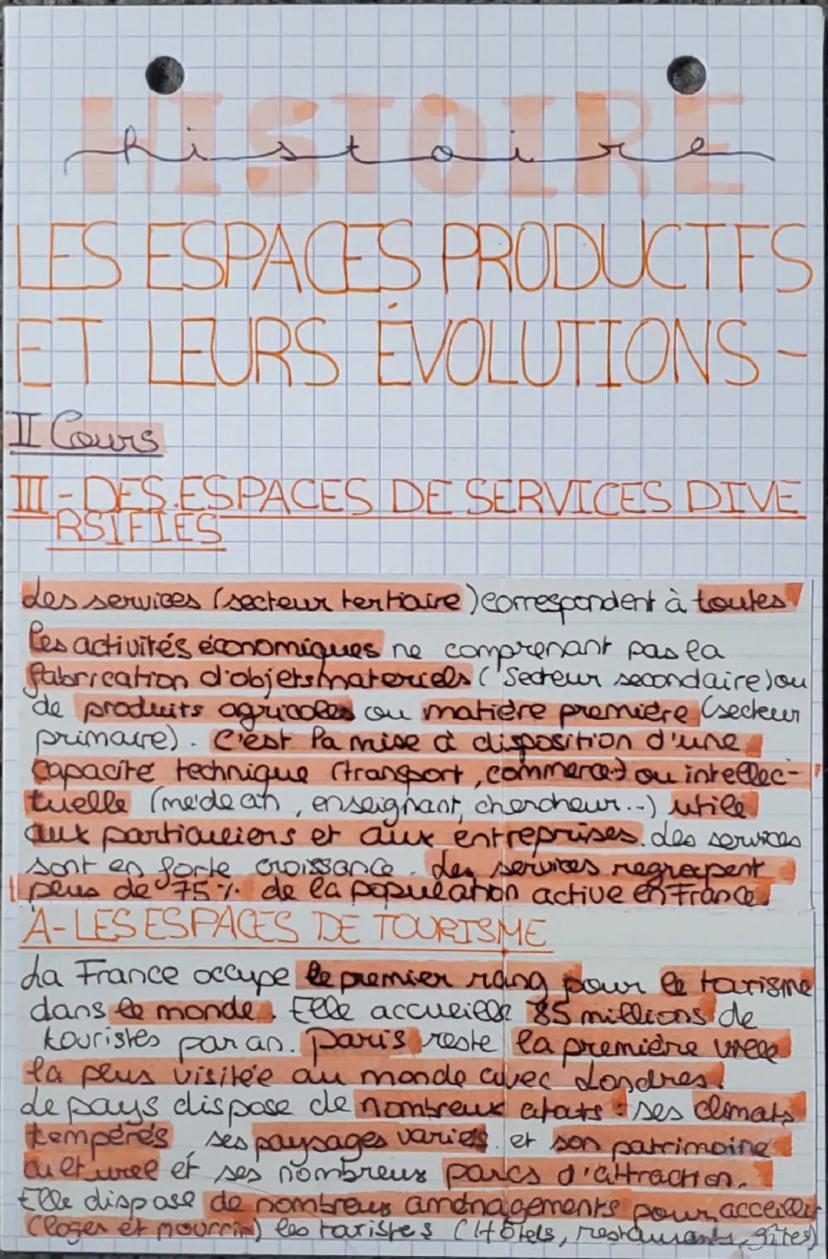 HISTOIRE
histoire
LES ESPACES PRODUCTFS
ET LEURS ÉVOLUTIONS -
II Cours
III - DES ESPACES DE SERVICES DIVE
RSIFIES
Les services (secteur tertiaire) correspondent à toutes
les activités économiques ne comprenant pas la
fabrication d'objets materiels (secteur secondaire) ou
de produits agricoles ou matière première (secteur
primaire). C'est la mise à disposition d'une
capacité technique (transport, commerce.) ou intellec-
tuelle (médecin, enseignant, chercheur...) utile
aux particuliers et aux entreprises. Les services
sont en forte croissance. Les services regroupent
plus de 75% de la population active en France.
A- LES ESPACES DE TOURISME
La France occupe le premier rang pour le tourisme
dans le monde. Elle accueille 85 millions de
touristes par an. Paris reste la première ville
la plus visitée au monde avec Londres.
Le pays dispose de nombreux atouts : ses climats
tempérés, ses paysages variés et son patrimoine
culturel et ses nombreux parcs d'attraction.
Elle dispose de nombreux aménagements pour acceillir
(loger et nourrir) les touristes (Hôtels, restaurants, gîtes)